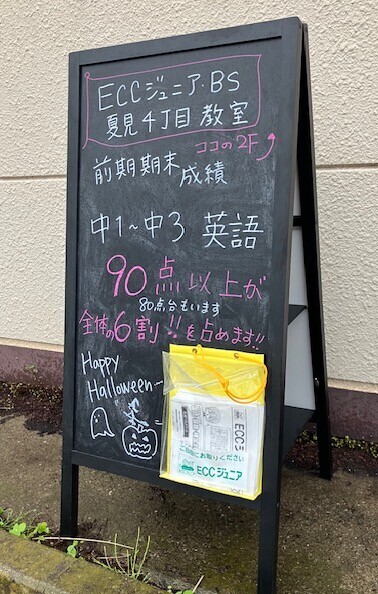 ECCジュニア・BS
夏見4丁目教室
ココの2F
前期期末
成績
中1~中3 英語
90点以上が
80点台もいます
全体の6割!!を占めます!!
Happy
Halloween
ご自由にお取りください
ECCジュニア